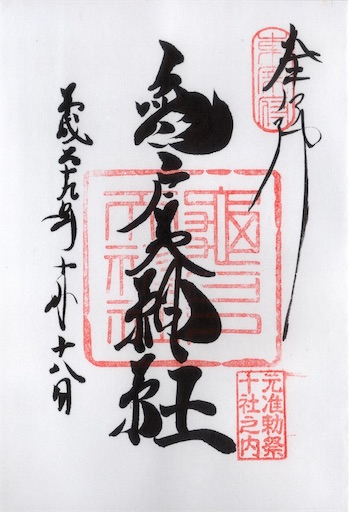 奉拝
亀戸天神社
平成二十九年十月十八日
元准勅祭
十社之内